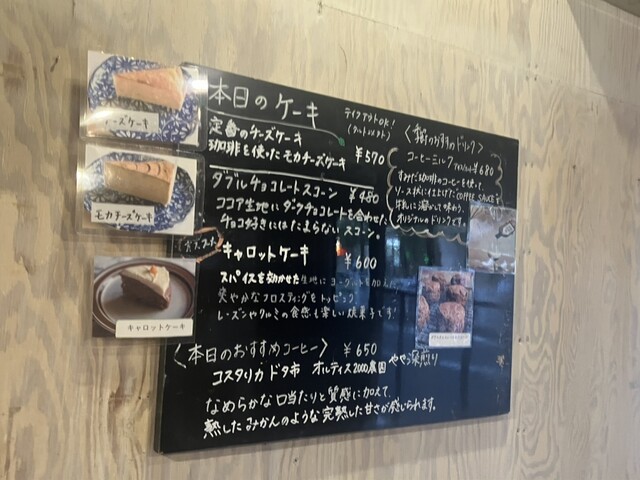 本日のケーキ
定番のチーズケーキ
珈琲を使ったモカチーズケーキ ¥570
ダブルチョコレートスコーン ¥450
ココア生地にダークチョコレートを合わせた
チョコ好きにはたまらないスコーン。
キャロットケーキ ¥600
スパイスを効かせた生地にヨーグルトを加えた
爽やかなフロスティングをトッピング
レーズンやクルミの食感も楽しい焼菓子です!
〈本日のおすすめコーヒー〉 ¥650
コスタリカ ドタ市 オルティス2000農園 やや深煎り
なめらかな口当たりと質感に加えて、
熟したみかんのような完熟した甘さが感じられます。
テイクアウトOK!
のおすすめドリンク〉
コーヒーミルク ¥680
珈琲のコーヒーを使って、
ソース状に仕上げたCOFFEE SAUCEを
牛乳に溶かして味わう、
オリジナルのドリンクです。
ーズケーキ
モカチーズケーキ
キャロットケーキ